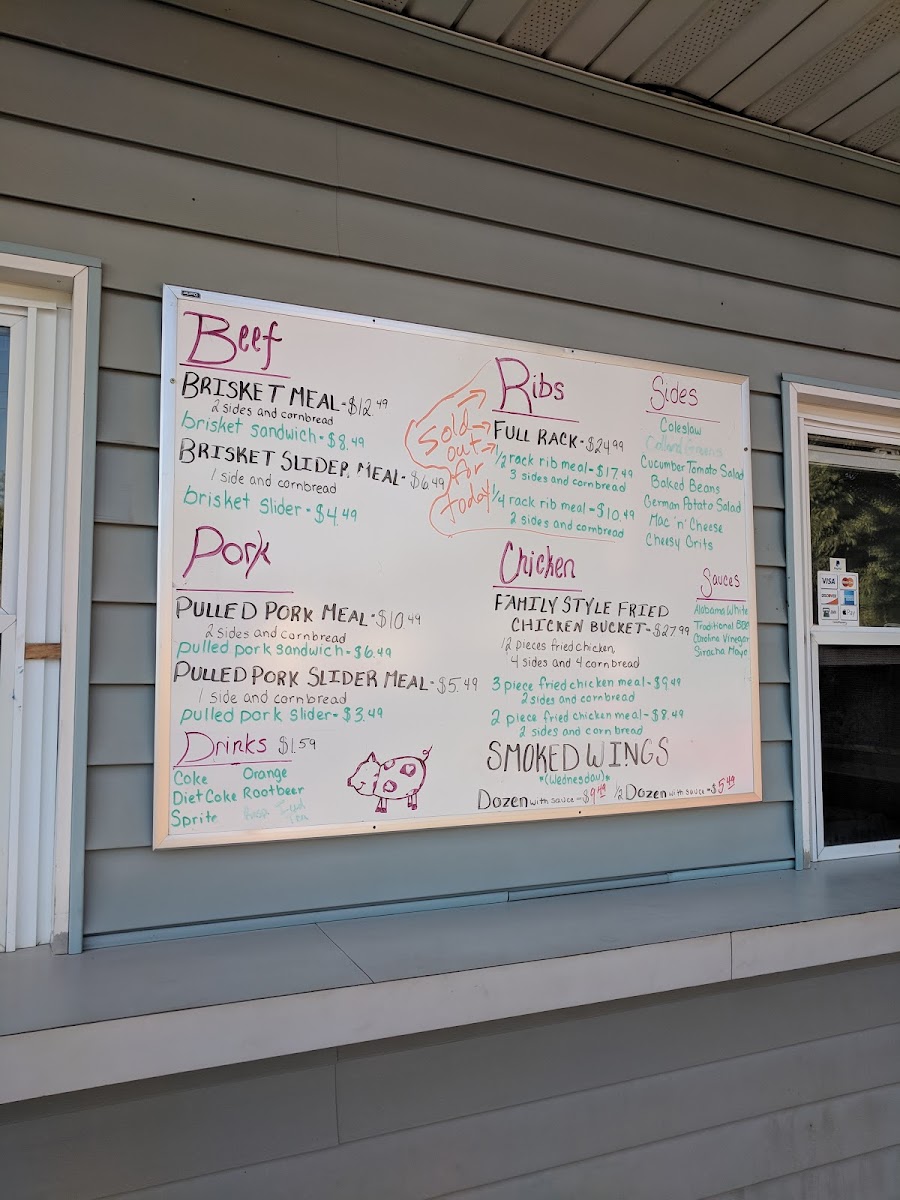 Beef
BRISKET MEAL-$12.49
2 sides and cornbread
brisket sandwich-$8.49
BRISKET SLIDER MEAL-$6.49
1 side and cornbread
brisket slider-$4.49
Pork
PULLED PORK MEAL-$10.49
2 sides and cornbread
pulled pork sandwich-$6.49
PULLED PORK SLIDER MEAL-$5.49
1 side and cornbread
pulled pork slider-$3.49
Drinks $1.59
Coke Orange
Diet Coke Rootbeer
Sprite
Sold
out
for
today
Ribs
FULL RACK-$24.99
1/2 rack rib meal-$17.49
3 sides and cornbread
1/4 rack rib meal-$10.49
2 sides and cornbread
Chicken
FAMILY STYLE FRIED
CHICKEN BUCKET-$27.99
12 pieces fried chicken,
4 sides and 4 cornbread
3 piece fried chicken meal-$9.49
2 sides and cornbread
2 piece fried chicken meal-$8.49
2 sides and cornbread
SMOKED WINGS
*(Wednesday)*
Dozen with sauce-$9.49 1/2 Dozen with sauce-$5.49
Sides
Coleslaw
Collard Greens
Cucumber Tomato Salad
Baked Beans
German Potato Salad
Mac 'n' Cheese
Cheesy Grits
Sauces
Alabama White
Traditional BBQ
Carolina Vinegar
Siracha Mayo
VISA
DISCOVER
Pay